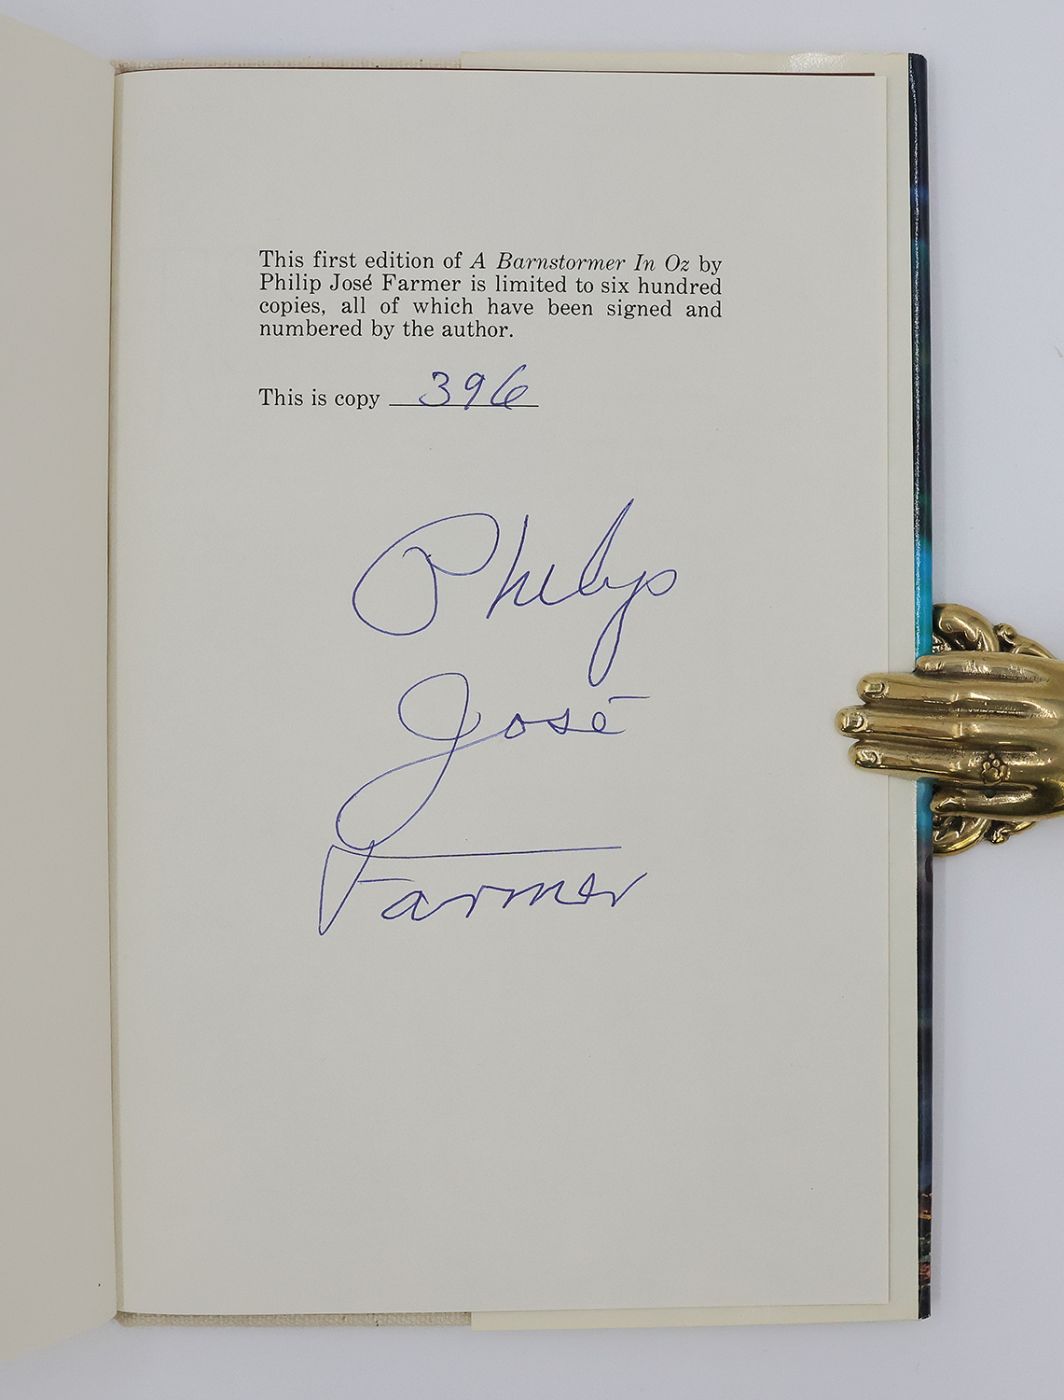 This first edition of A Barnstormer In Oz by
Philip José Farmer is limited to six hundred
copies, all of which have been signed and
numbered by the author.
This is copy 396
Philip
José
Farmer